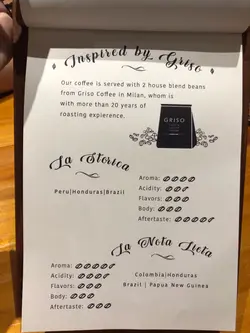 Inspired by Griso
Our coffee is served with 2 house blend beans
from Griso Coffee in Milan, whom is
with more than 20 years of
roasting expierence.
GRISO
La Storica
Peru|Honduras|Brazil
Aroma:
Acidity:
Flavors:
Body:
Aftertaste:
La Nota Lieta
Aroma:
Acidity:
Flavors:
Body:
Aftertaste:
Colombia|Honduras
Brazil | Papua New Guinea